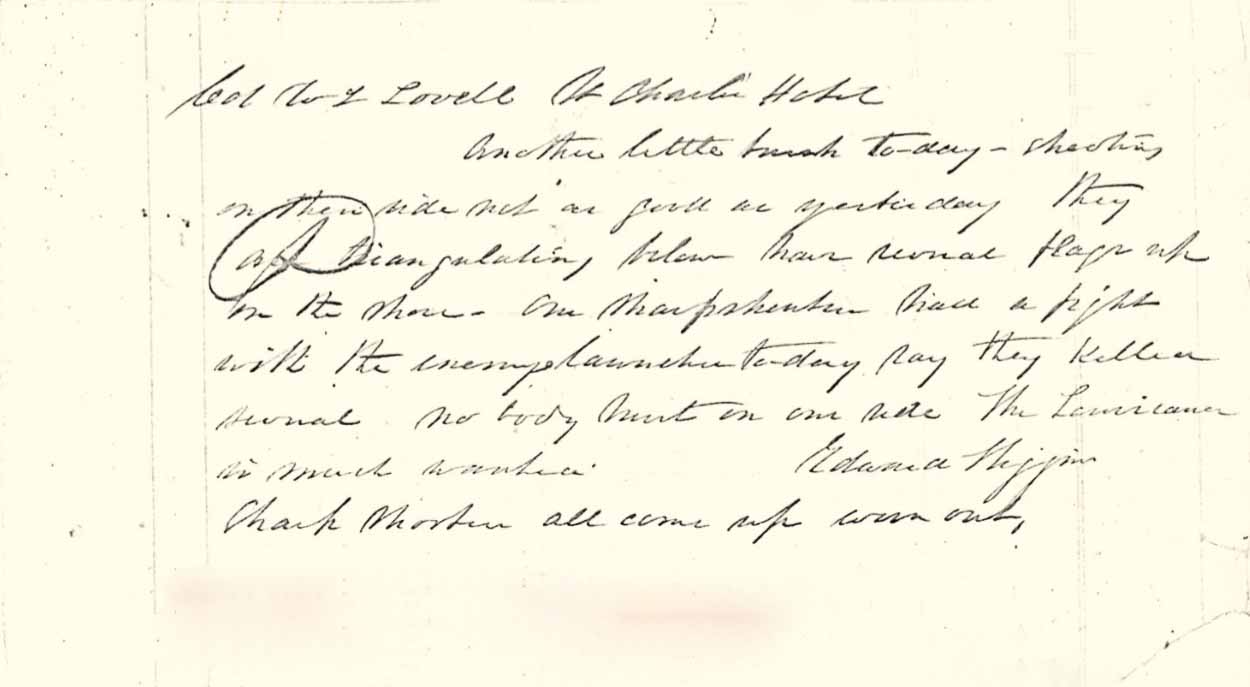 Col W S Lovell St Charles Hotel
Another little brush to-day - shooting
on their side not as good as yesterday they
are triangulating below have several flags up
on the shore - Our sharpshooters had a fight
with the enemys launches to-day say they killed
several no body hurt on our side The Louisiana
is much wanted. Edward Higgins
Sharp Shooters all come up worn out,